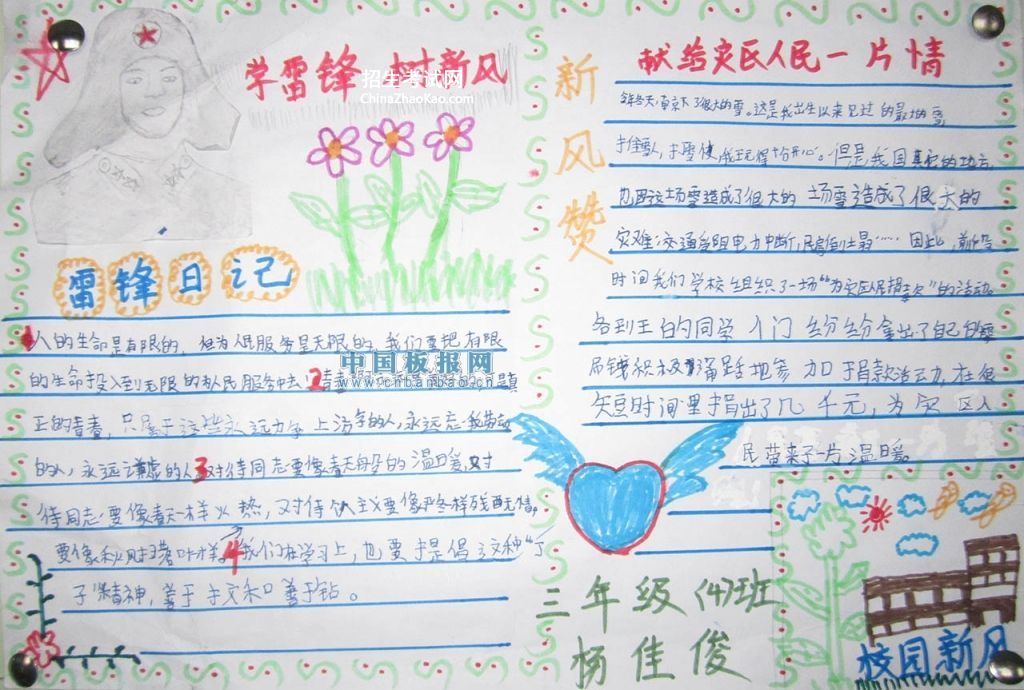 学雷锋 树新风
招生考试网
ChinaZhaoKao.com
雷锋日记
人的生命是有限的，但为人民服务是无限的，我们要把有限
的生命投入到无限的为人民服务中去。2青春
正的青春，只属于这些永远力争上游的人，永远忘我劳动
的人，永远谦虚的人3对待同志要像春天般的温暖，对
待同志要像春天一样火热，对待个人主义要像严冬一样残酷无情。
要像秋风扫落叶一样。4我们在学习上，也要提倡这种“丁
子”精神，善于挤和善于钻。
中国板报网
www.cnbanbao.cn
新风赞
献给灾区人民一片情
今年冬天，南京下了很大的雪。这是我出生以来见过的最大的雪，
堆雪人，打雪仗，我玩得十分开心。但是我国其它的地方，
也因这场雪造成了很大的 场雪造成了很大的
灾难：交通受阻电力中断，民房倒塌……因此，前段
时间我们学校组织了一场“为灾区人民捐款”的活动。
各到王的同学们纷纷拿出了自己的零
用钱积极踊跃地参加捐款活动，在很
短时间里捐出了几千元，为灾区人
民带来了一片温暖。
三年级(4)班
杨佳俊
校园新风